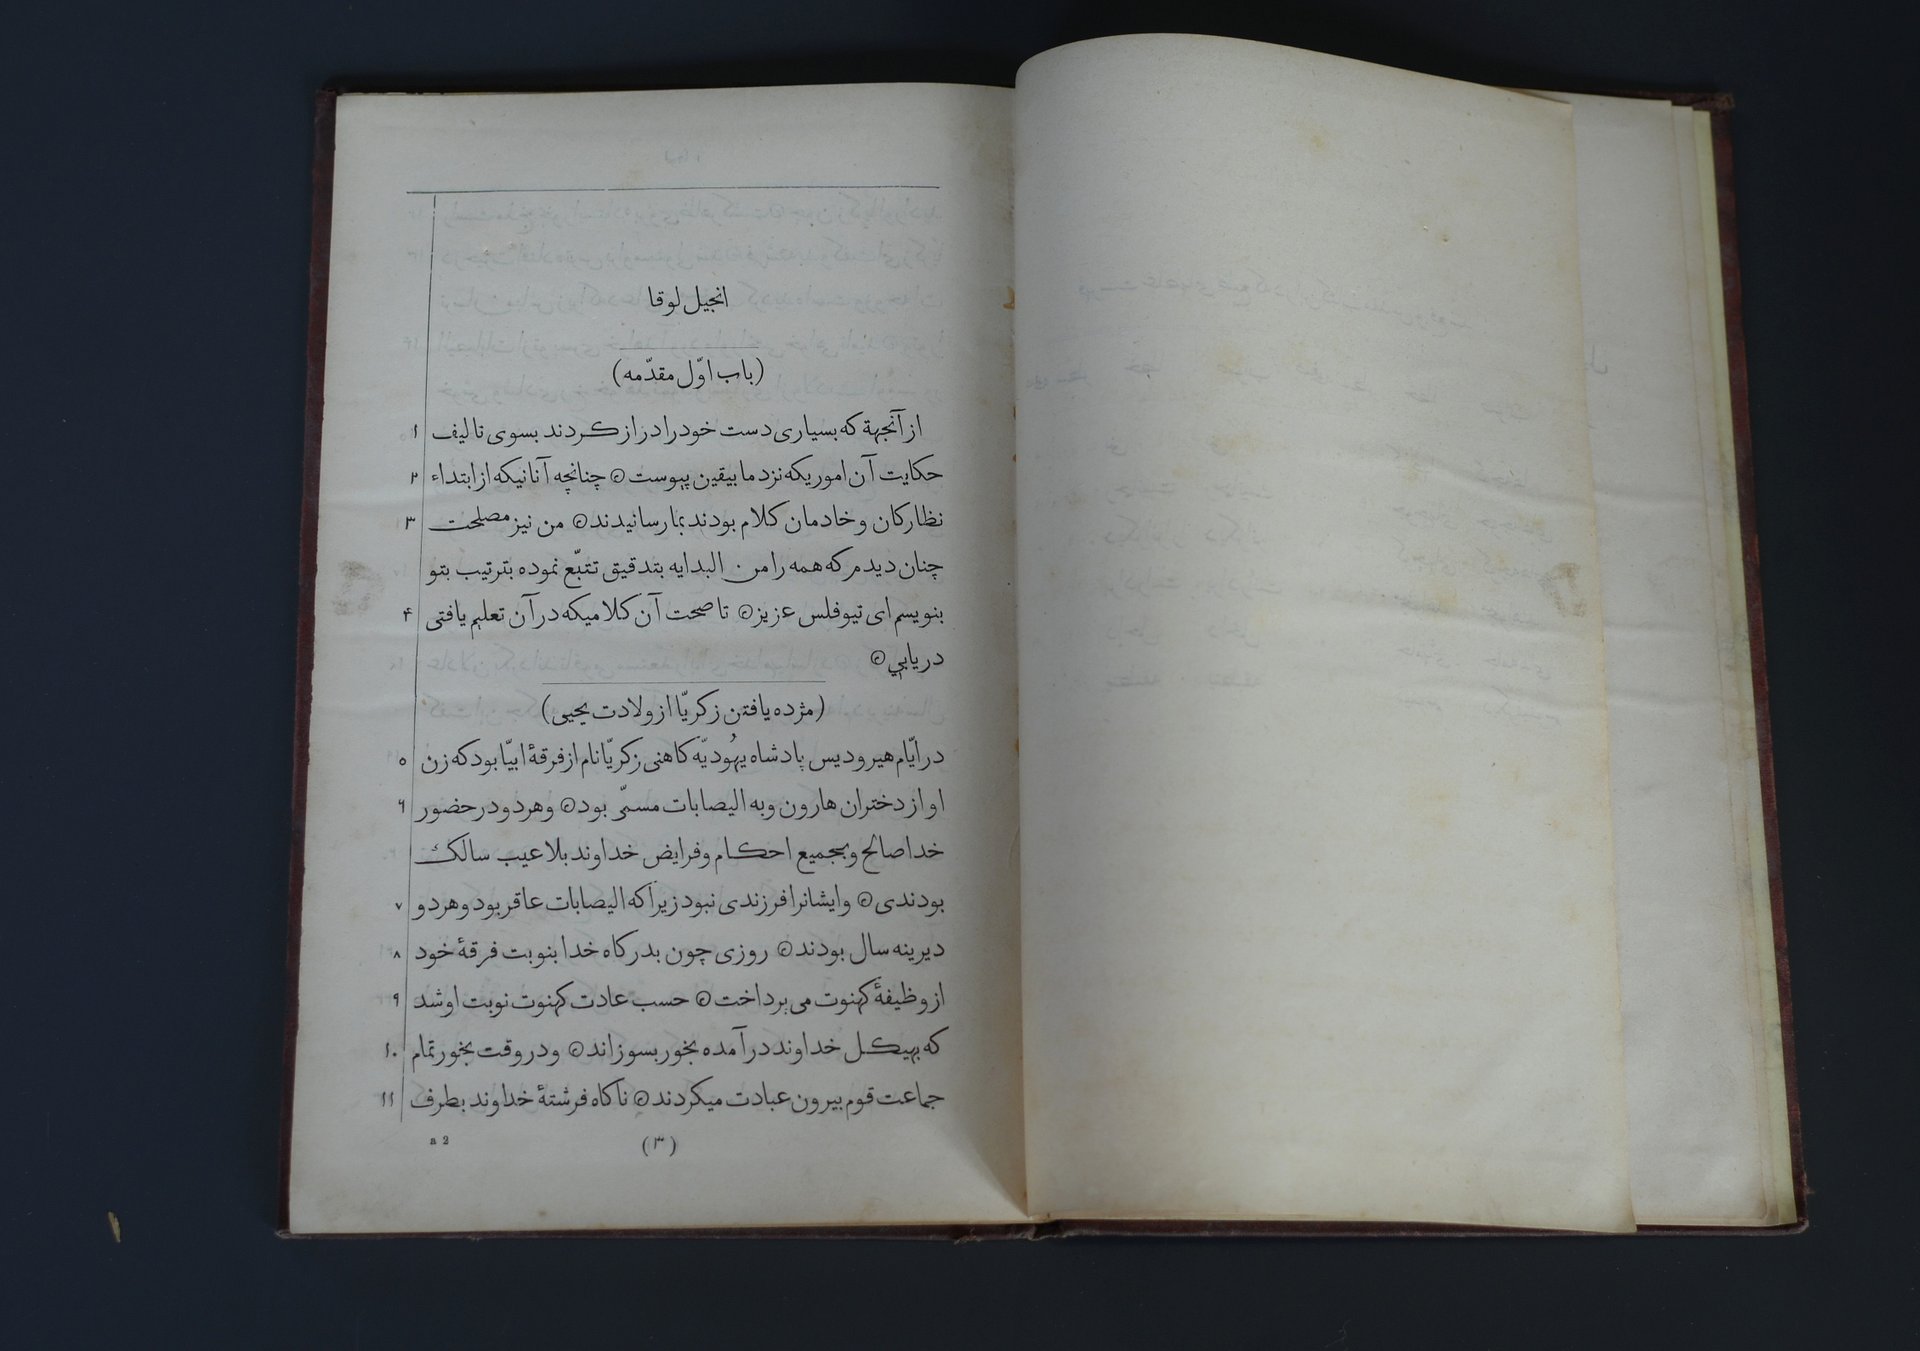 انجیل لوقا
(باب اوّل مقدّمه)
از آنجهة که بسیاری دست خود را دراز کردند بسوی تالیف ۱
حکایت آن اموریکه نزد ما بیقین پیوست۝ چنانچه آنانیکه از ابتداء ۲
نظارکان و خادمان کلام بودند بما رسانیدند۝ من نیز مصلحت ۳
چنان دیدم که همه را من البدایه بتدقیق تتبّع نموده بترتیب بتو
بنویسم ای تیوفلس عزیز۝ تا صحت آن کلامیکه در آن تعلیم یافتی ۴
دریابی۝
(مژده یافتن زکریّا از ولادت یحیی)
در ایّام هیرودیس پادشاه یهُودیّه کاهنی زکریّا نام از فرقهٔ ابیّا بود که زن ۵
او از دختران هارون و به الیصابات مسمّی بود۝ و هر دو در حضور ۶
خدا صالح و بجمیع احکام و فرایض خداوند بلا عیب سالک
بودندی۝ و ایشانرا فرزندی نبود زیرا که الیصابات عاقر بود و هر دو ۷
دیرینه سال بودند۝ روزی چون بدرکاه خدا بنوبت فرقهٔ خود ۸
از وظیفهٔ کهنوت می پرداخت۝ حسب عادت کهنوت نوبت او شد ۹
که بهیکل خداوند در آمده بخور بسوزاند۝ و در وقت بخور تمام ۱۰
جماعت قوم بیرون عبادت میکردند۝ ناکاه فرشتهٔ خداوند بطرف ۱۱
a 2
(۳)